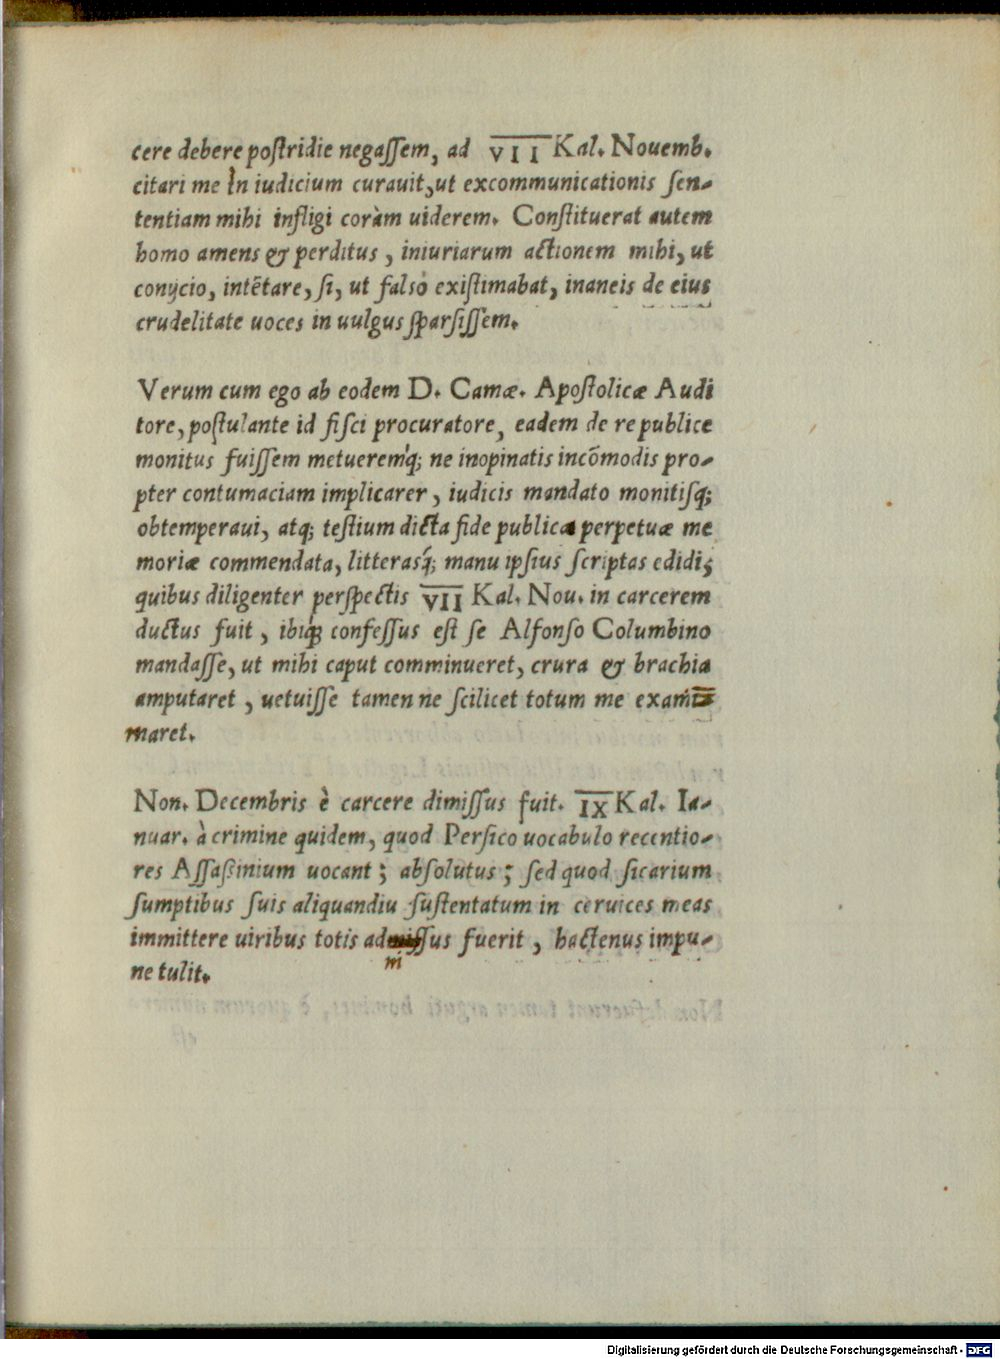 cere debere postridie negassem, ad V̅I̅I̅ Kal. Nouemb.
citari me in iudicium curauit, ut excommunicationis sen-
tentiam mihi infligi coràm uiderem. Constituerat autem
homo amens & perditus, iniuriarum actionem mihi, ut
conijcio, intētare, si, ut falsò existimabat, inaneis de eius
crudelitate uoces in uulgus sparsissem.
Verum cum ego ab eodem D. Camæ. Apostolicæ Audi
tore, postulante id fisci procuratore, eadem de re publice
monitus fuissem metueremq́; ne inopinatis incōmodis pro-
pter contumaciam implicarer, iudicis mandato monitisq;
obtemperaui, atq; testium dicta fide publica perpetuæ me
moriæ commendata, litterasq́; manu ipsius scriptas edidi;
quibus diligenter perspectis V̅I̅I̅ Kal. Nou. in carcerem
ductus fuit, ibiq́; confessus est se Alfonso Columbino
mandasse, ut mihi caput comminueret, crura & brachia
amputaret, uetuisse tamen ne scilicet totum me exami
maret.
Non. Decembris è carcere dimissus fuit. I̅X̅ Kal. Ia-
nuar. à crimine quidem, quod Persico uocabulo recentio-
res Assaßinium uocant; absolutus; sed quod sicarium
sumptibus suis aliquandiu sustentatum in ceruices meas
immittere uiribus totis admissus fuerit, hactenus impu-
ni
ne tulit.
Digitalisierung gefördert durch die Deutsche Forschungsgemeinschaft - DFG